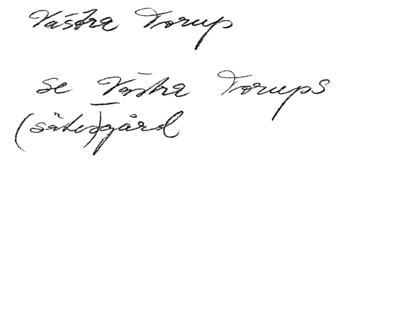 Västra Torup
se Västra Torups
(säteri)gård